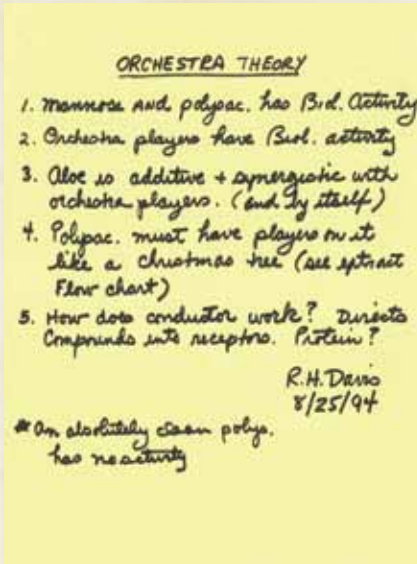 ORCHESTRA THEORY
1. Mannose and polysac. has Biol. Activity
2. Orchestra players have Biol. activity
3. Aloe is additive + synergistic with
orchestra players. (and by itself)
4. Polysac. must have players on it
like a christmas tree (see extract
Flow chart)
5. How does conductor work? Directs
Compounds into receptors. Protein?
R.H. Davis
8/25/94
* An absolutely clean polys.
has no activity